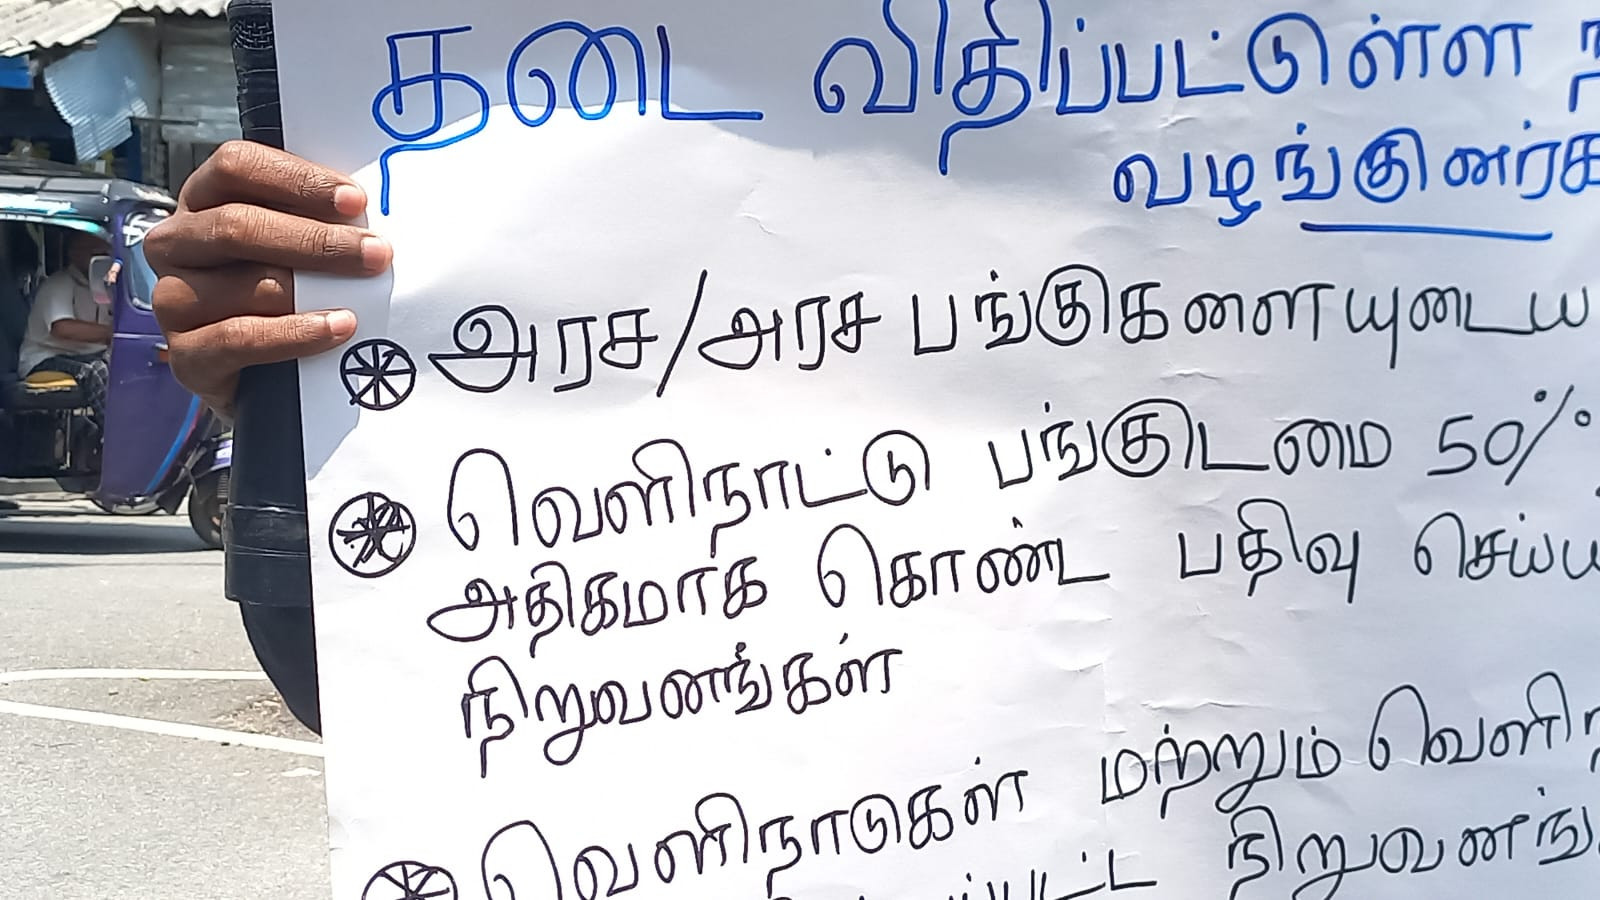 தடை விதிப்பட்டுள்ள
வழங்குனர்க
அரச/அரச பங்குகளையுடைய
வெளிநாட்டு பங்குடமை 50%
அதிகமாக கொண்ட பதிவு செய்ய
நிறுவனங்கள்
வெளிநாடுகள் மற்றும் வெளி
நிறுவனங்